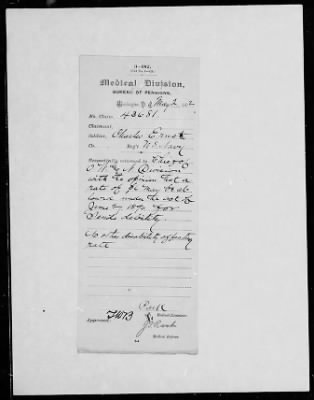 Medical Division,
BUREAU OF PENSIONS,
Washington, D. C., May 2, 
No. Claim 43681
Claimant
Soldier Charles Ernst
Co. Reg't U.S. Navy
Respectfully returned to Chief
Division
with the opinion that a
rate of $6 may be al-
lowed under the act of
June 27 1890 for
Senile debility.
No other disability affecting
rate
Approved:
Medical Examiner.
Medical Referee.